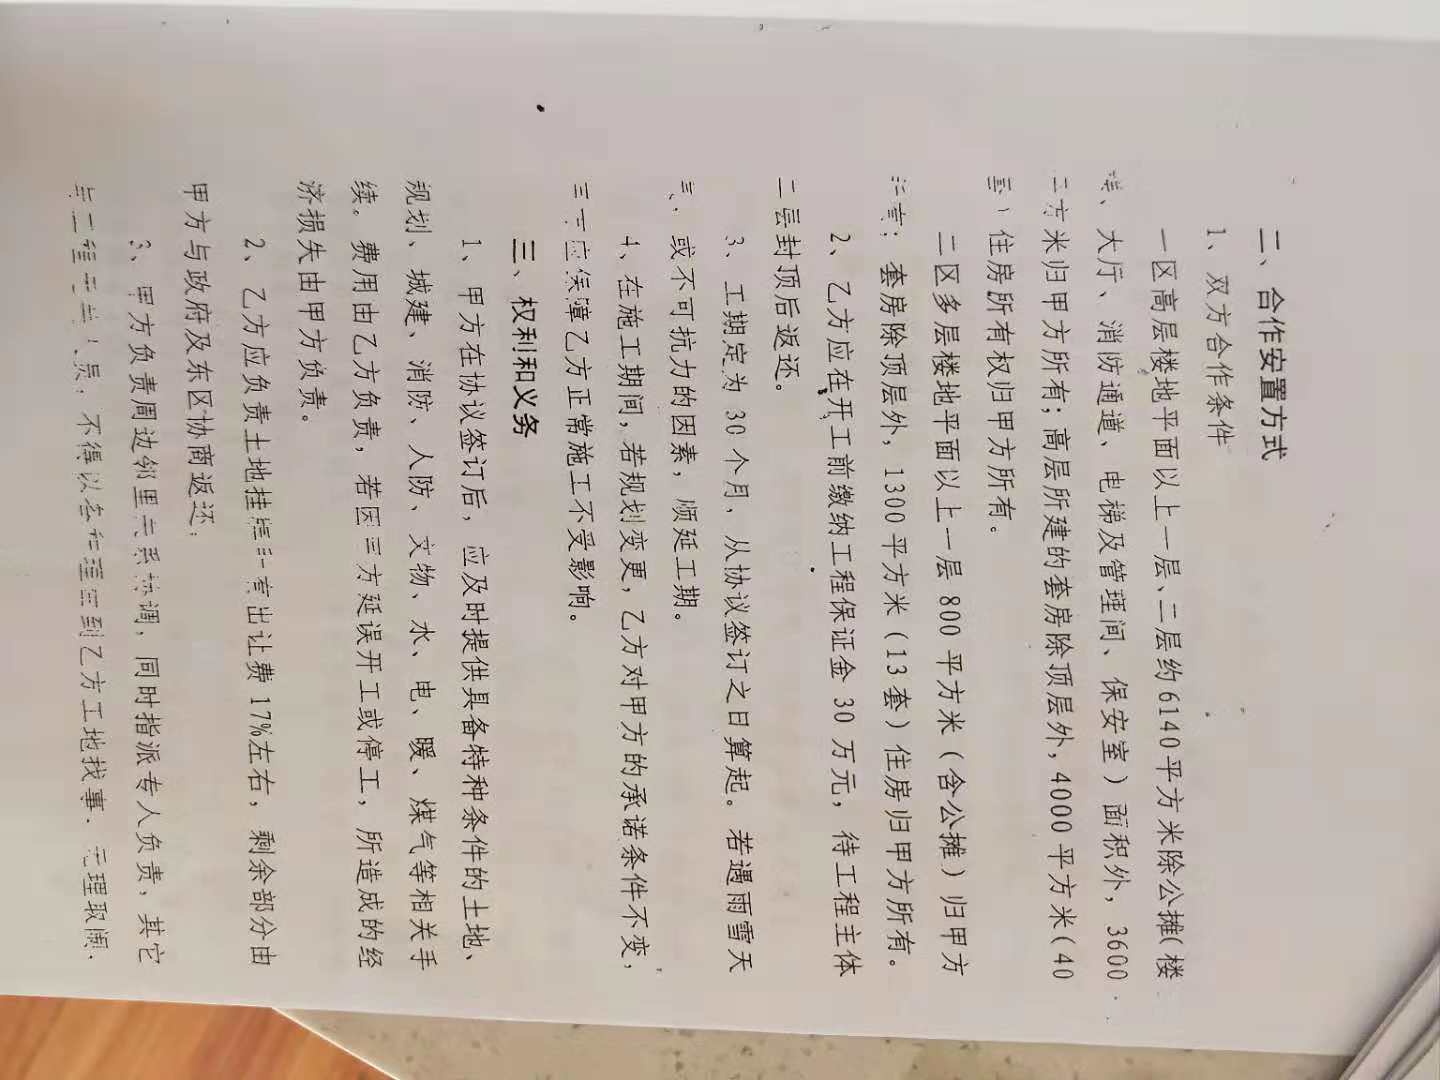 二、合作安置方式
1、双方合作条件
一区高层楼地平面以上一层、二层约6140平方米除公摊(楼
梯、大厅、消防通道、电梯及管理间、保安室)面积外,3600
平方米归甲方所有;高层所建的套房除顶层外,4000平方米(40
套)住房所有权归甲方所有。
二区多层楼地平面以上一层800平方米(含公摊)归甲方
所有;套房除顶层外,1300平方米(13套)住房归甲方所有。
2、乙方应在开工前缴纳工程保证金30万元,待工程主体
二层封顶后返还。
3、工期定为30个月,从协议签订之日算起。若遇雨雪天
或不可抗力的因素,顺延工期。
4、在施工期间,若规划变更,乙方对甲方的承诺条件不变,
方应保障乙方正常施工不受影响。
三、权利和义务
1、甲方在协议签订后,应及时提供具备特种条件的土地、
规划、城建、消防、人防、文物、水、电、暖、煤气等相关手
续。费用由乙方负责,若因方延误开工或停工,所造成的经
济损失由甲方负责。
2、乙方应负责土地挂出让费17%左右,剩余部分由
甲方与政府及东区协商返还.
3、甲方负责周边邻里关系协调,同时指派专人负责,其它
工程员,不得以各种理由到乙方工地找事.无理取闹.